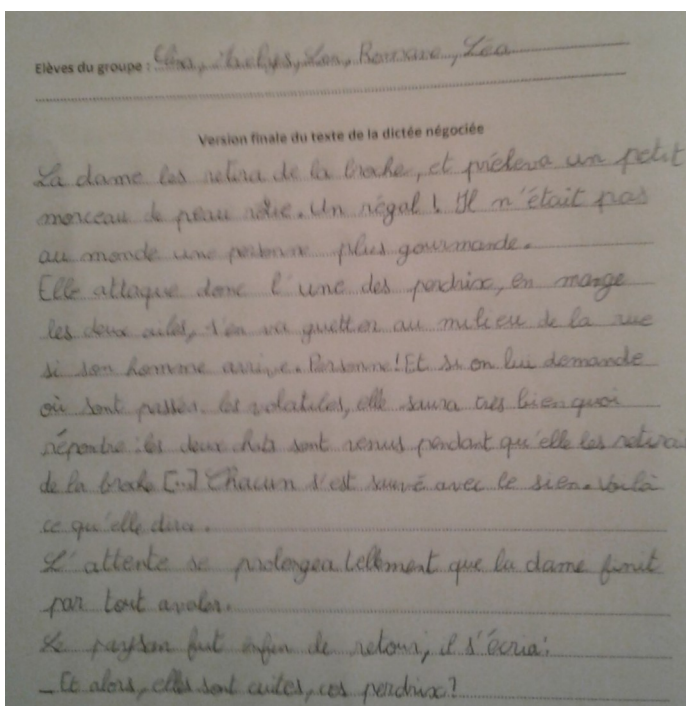 Elèves du groupe : Léa, Maelys, Zoa, Romane, Léa
Version finale du texte de la dictée négociée
La dame les retira de la broche, et préleva un petit
morceau de peau rôtie. Un régal ! Il n'était pas
au monde une personne plus gourmande.
Elle attaque donc l'une des perdrix, en mange
les deux ailes, s'en va guetter au milieu de la rue
si son homme arrive. Personne ! Et si on lui demande
où sont passées les volatiles, elle saura très bien quoi
répondre : les deux chats sont venus pendant qu'elle les retira
de la broche [...] Chacun s'est sauvé avec le sien. Voilà
ce qu'elle dira.
L'attente se prolongea tellement que la dame finit
par tout avaler.
Le paysan fut enfin de retour, il s'écria :
_ Et alors, elles sont cuites, ces perdrix ?